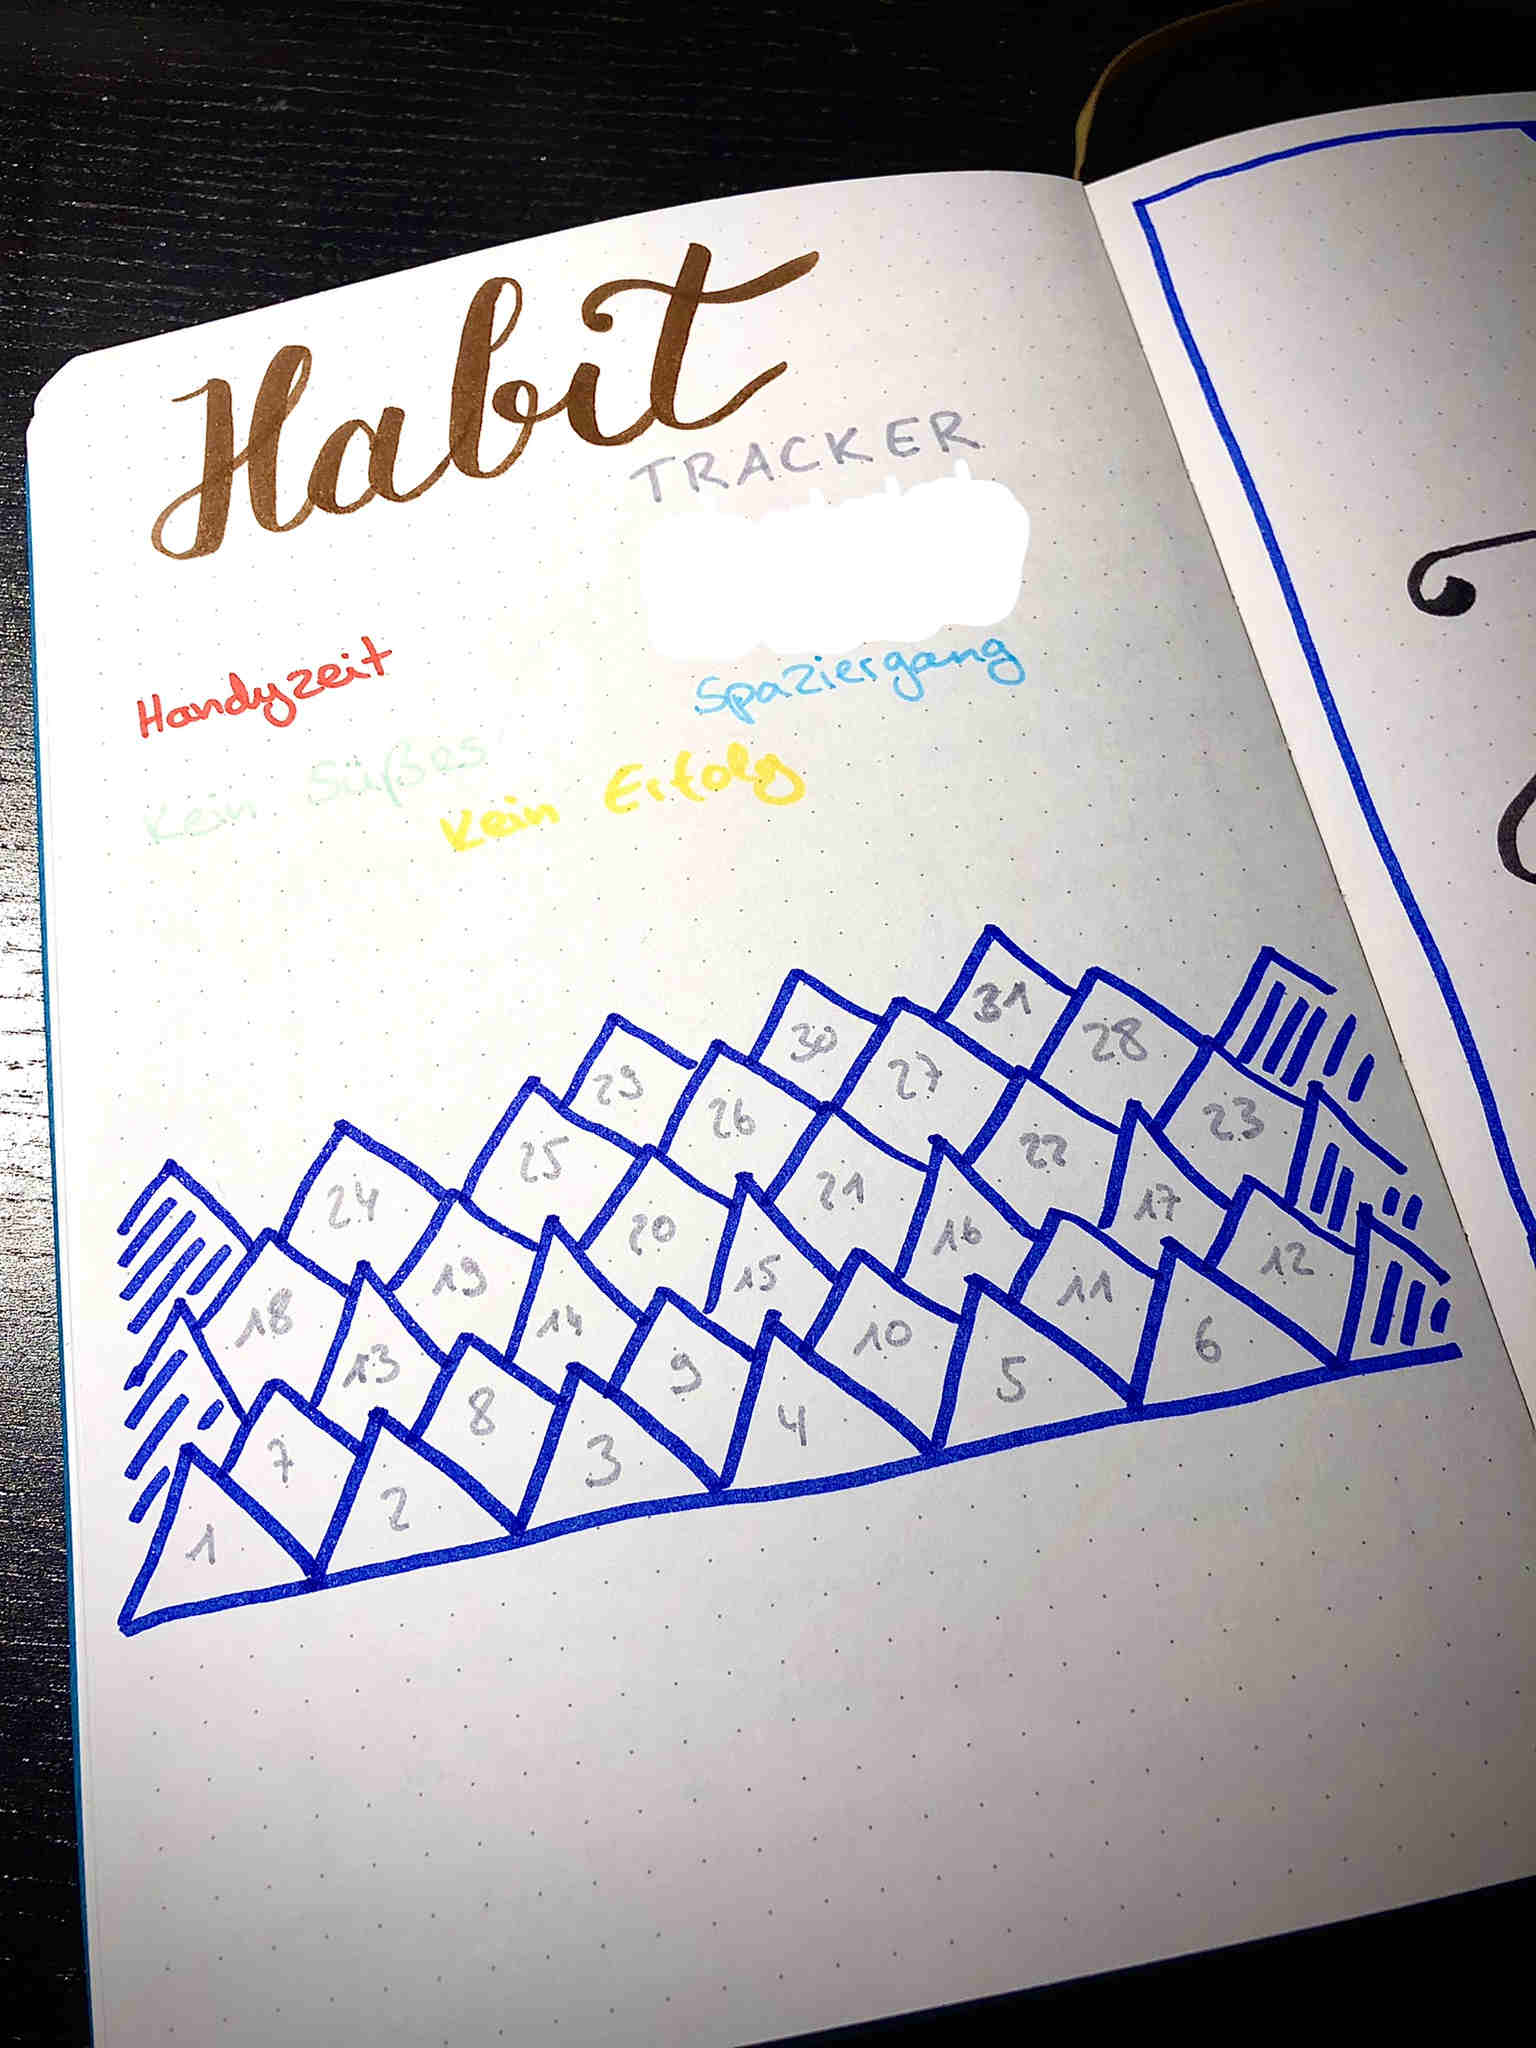 Habit
TRACKER
Handyzeit
Spaziergang
Kein Süßes
Kein Erfolg
29 30 31
24 25 26 27 28
18 19 20 21 22 23
13 14 15 16 17
7 8 9 10 11 12
1 2 3 4 5 6